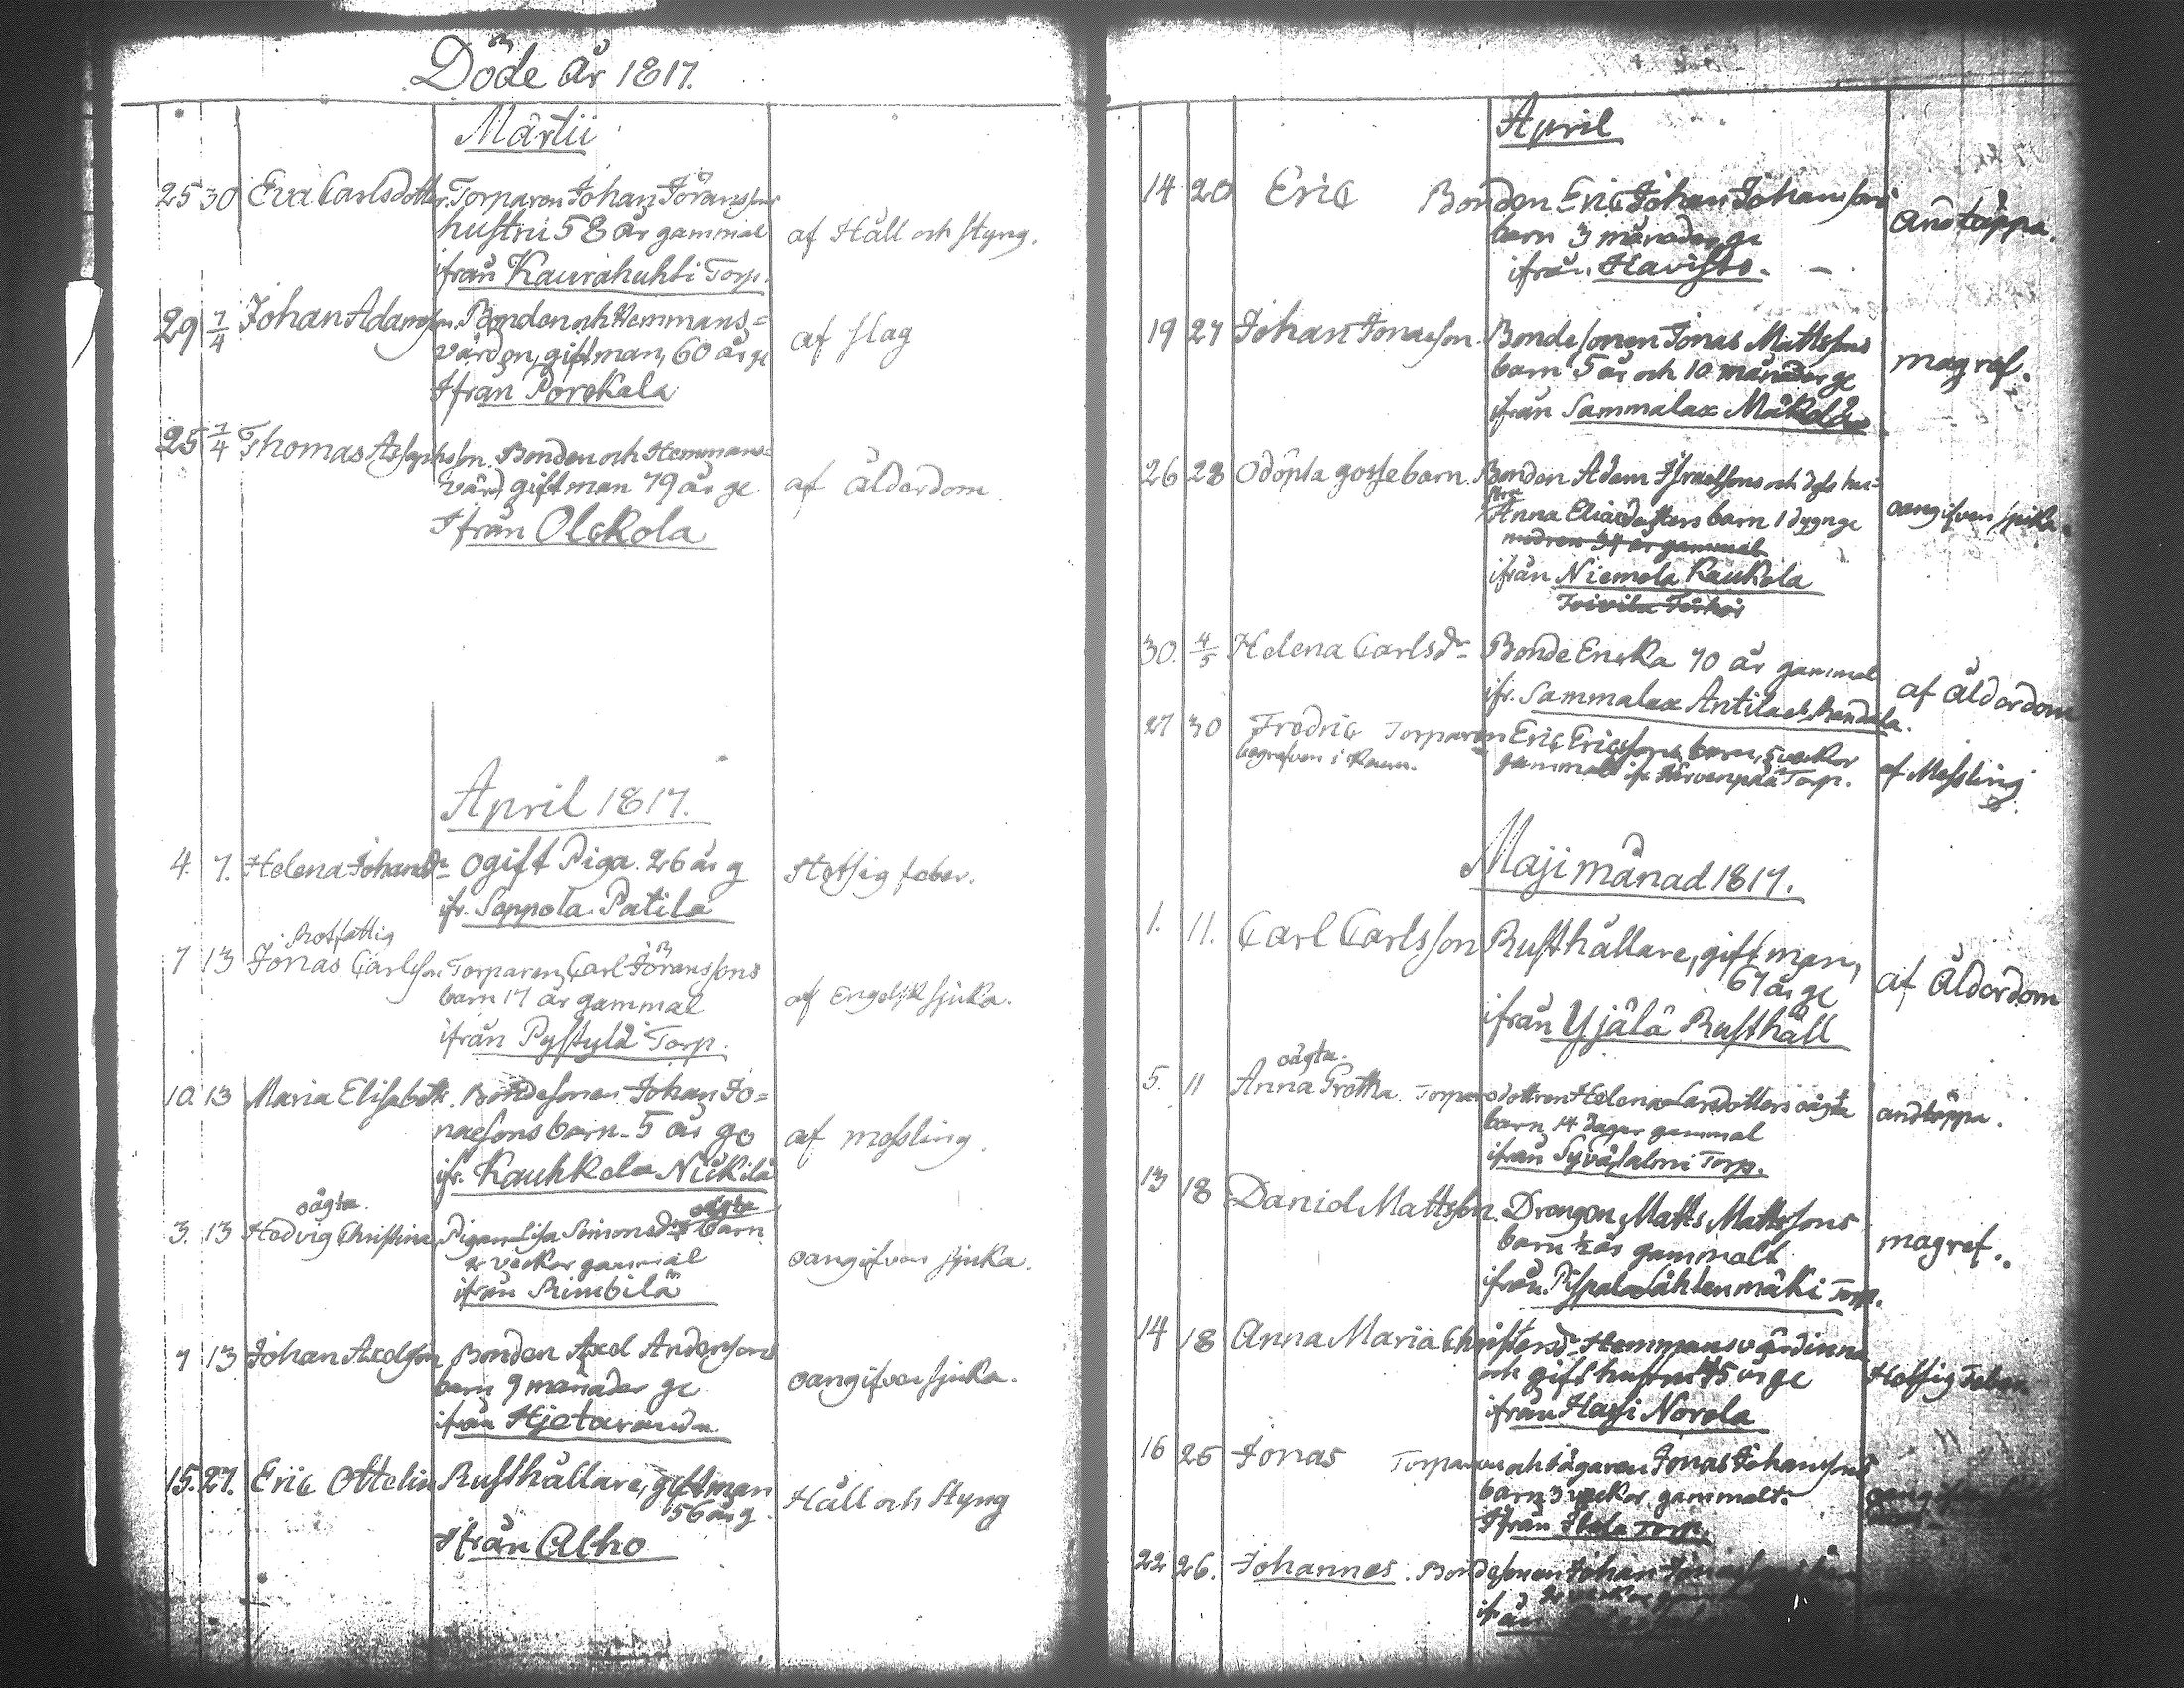 Döde År 1817.
Martii
25 30 Eva Carlsdotter Torparen Johan Jöranssons
hustru 58 år gammal
af Håll och styng.
ifrån Kaurahuhti Torp.
29 1/4 Johan Adamsson Bonden och Hemmans=
värden, gift man, 60 år ge
af slag
Ifrån Porokala
25 1/4 Thomas Bonden och Hemmans=
värd gift man 79 år ge
af ålderdom.
Ifrån Olckola
April 1817.
4. 7. Helena Johansdr ogift Piga. 26 år g
Hetsig feber.
ifr. Seppola Patila
Rotfattig
7 13 Jonas Carlsson Torparen Carl Jöranssons
barn 17 år gammal
af Engelsk sjuka.
ifrån Pystylä Torp.
10. 13 Maria Elisabeth. Bondesonen Johan Jo=
naesons barn. 5 år ge
af messling.
ifr. Kauhkela Nickilä
oägta. oägta
3. 13 Hedvig Christina Pigan Lisa Simonsdrs barn.
2 veckor gammal
oangifven sjuka.
ifrån Rimbilä
7 13 Johan Axelsson Bonden Axel Anderssons
barn 9 månader ge
oangifven sjuka.
ifrån Hjetaranda
15. 27. Eric Ottelin Rusthållare, gift man
56 år g.
Håll och styng
Ifrån Alho
April
14 20 Eric Bonden Eric Johan Johanssons
barn 3 månader ge
andtäppa.
ifrån Havisto. –
19 27 Johan Jonaesson. Bondesonen Jonas Mattssons
barn 5 år och 10 månader ge
magref.
ifrån Sammalax Mäkelä
26 28 Odöpta gossebarn. Bonden Adam Israelssons och dess hu=
stru
Anna Eliaedotters barn 1 dygn ge
oangifven sjuka.
modren 34 år gammal
ifrån Niemela Kaukola
30. 4/5 Helena Carlsdr Bonde Enka 70 år gammal
af ålderdom
ifr. Sammalax Antila
27 30 Fredric Torparen Eric Ericssons barn, 5 veckor
begrafven i
gammalt ifr Järvenpää Torp.
af Messling
Maji månad 1817.
1. 11. Carl Carlsson Rusthållare, gift man,
67 år ge
af ålderdom
ifrån Yjälä Rusthåll
oägta.
5. 11 Anna Gretha Torparedottren Helena Larsdotters oägta
barn 14 dagar gammal
andtäppa.
ifrån Syväsalmi Torp.
13 18 Daniel Mattsson. Drengen Matts Mattssons
barn ½ år gammalt
magref.
ifrån Pispala Lähtenmäki Torp.
14 18 Anna Maria Christersdr Hemmansvärdinna
och gift hustru 45 år ge
Hetsig Feber
ifrån Norola
16 25 Jonas Torparen och Jägaren Jonas Johanssons
barn 3 veckor gammalt.
Ifrån Torp.
22 26. Johannes. Bondesonen Johan
ifrån